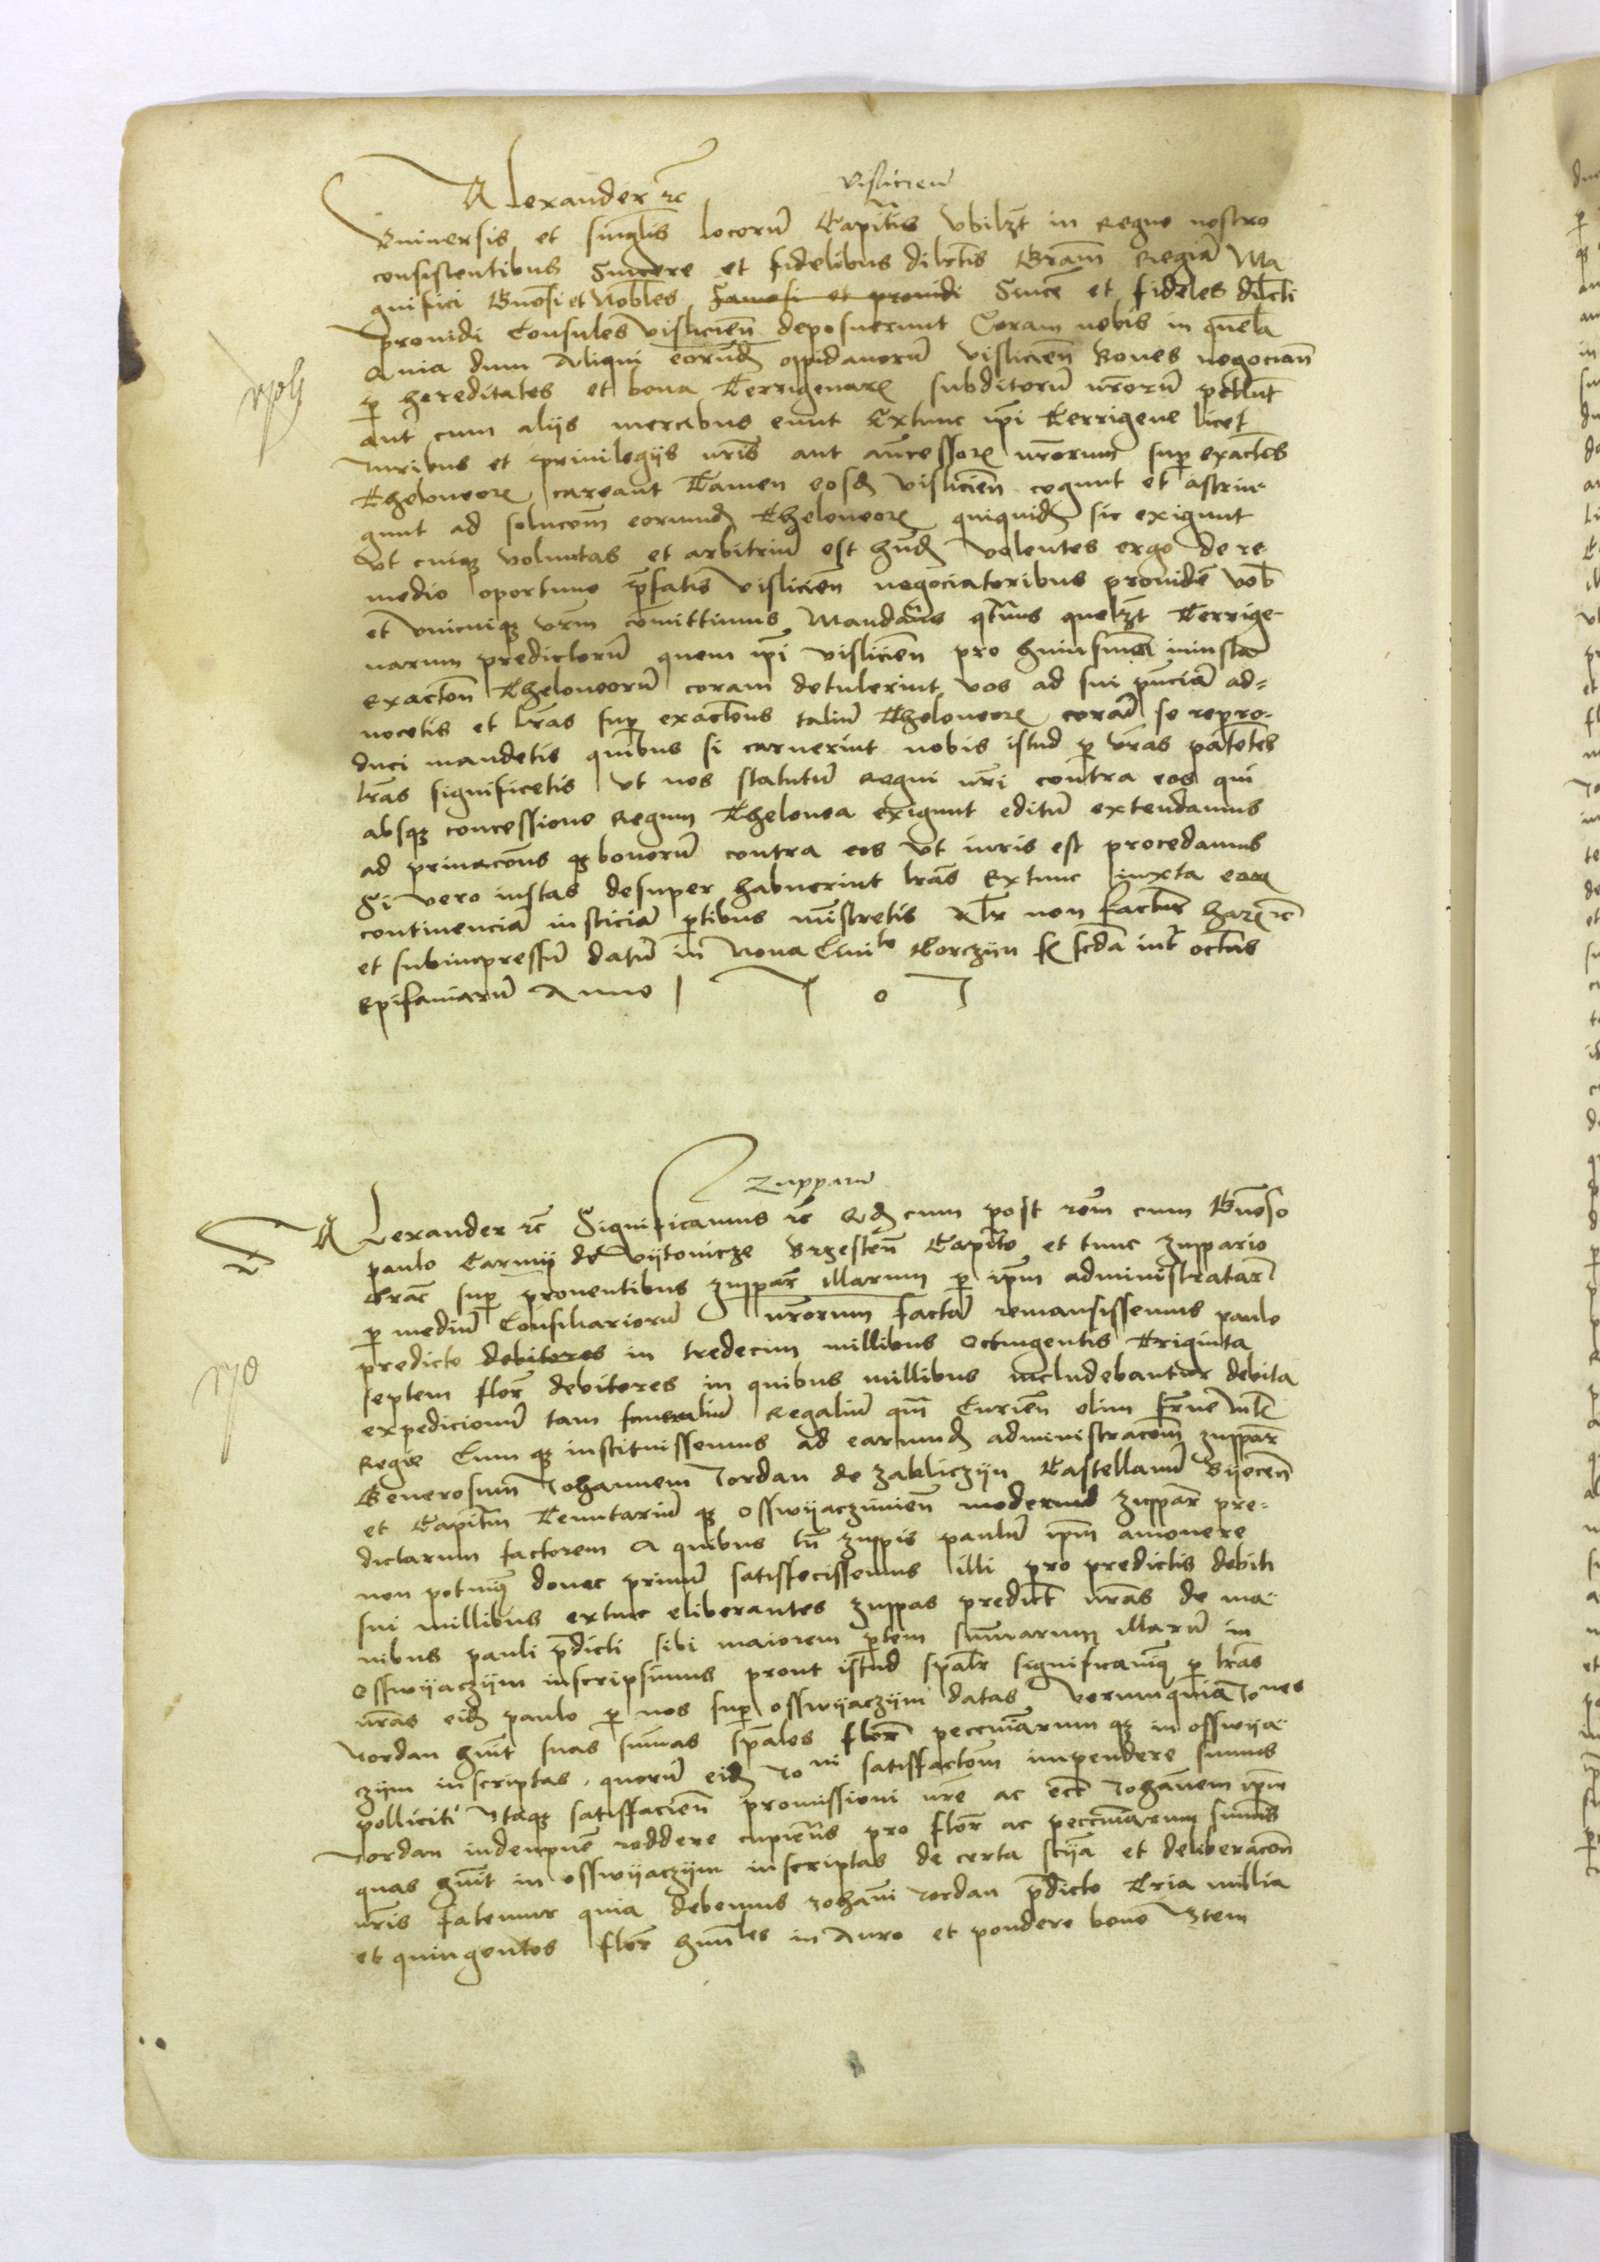 Alexander etc
Vislicien
Universis et singlis locorū Capitis vbilzt in Regno nostro
consistentibus Sincere et fidelibus dilectis Gram Regiā Ma-
gnifici Gnosi et Nobles Famosi et prouidi Since et fideles dilcti
prouidi Consules vislicien deposuerunt Coram nobis in querla
Quia dum Aliqui eorund opidanorū vislicien Boues negociann
p hereditates et bona Terrigenar subditorū nrorū pellunt
aut cum aliis mercibus eunt Extunc ipi Terrigene licet
Iuribus et priuilegijs nris aut ancessor nrorum sup exactes
Theloneor careant Tamen eosd vislicien cogunt et astrin-
gunt ad solucom eorumd Theloneor quiquid sic exigunt
vt cuiq voluntas et arbitriū est hnd Volentes ergo de re-
medio oportuno pfatis vislicien negociatoribus prouide vob
et vnicuiq vrm comittimus Mandams qtnus quelzt Terrige-
narum predictorū quem ipi vislicien pro huiusmōi iniusta
exacton Theloneorū coram detulerint vos ad sui pnciā ad-
uocetis et lras sup exactōns taliū Theloneor corā se repro-
duci mandetis quibus si caruerint nobis istud p vras patētes
lras significetis vt nos statutū Regni nri contra eos qui
absq concessione Regum Thelonea exigunt editū extendamus
ad priuacōns q bonorū contra eos vt iuris est procedamus
Si vero iustas desuper habuerint lras Extunc iuxta ear
continenciā iusticiā ptibus mistretis Alr non factur har etc
et subimpressū datū in Noua Ciuite Corczyn f scda infr octas
Epifaniarū Anno 1 5 0 1
Zupparū
Alexander etc Significamus etc Qd cum post rōm cum Gnoso
paulo Carnij de vijtowicze Brzesten Capito et tunc zuppario
Crac sup prouentibus zuppar illarum p ipm administratar
p mediū Consiliariorū nrorum factā remansissemus paulo
predicto debitores in tredecim millibus Octingentis Triginta
septem flor debitores in quibus millibus includebantur debita
expedicionū tam funeraliū Regaliū qm Curien olim Frne
Regie Cum q instituissemus ad earumd administracom zuppar
Generosum Johannem Jordan de Zakliczijn Castellanū Byecen
et Capitm Tenutariū q Osswijaczimien modernū zuppar pre-
dictarum factorem A quibus tn zuppis paulū ipm amouere
non potuimq donec primū satisfecissemus illi pro predictis debiti
sui millibus extunc eliberantes zuppas predict nras de ma-
nibus pauli pdicti sibi maiorem ptem summarum illarū in
Osswijaczijm inscripsimus prout istud spalr significauimq p lras
nras eid paulo p nos sup osswijaczijm datas Verumquia Jones
Jordan huit suas summas spales flor pecuniarum q in osswija-
czijm inscriptas quorū eid Joni satisfactom impendere sumus
polliciti Itaq satisfacien promissioni nre ac ect Johannem ipm
Jordan indempne reddere cupientes pro flor ac pecuniarum sumis
quas huit in osswijaczijm inscriptas de certa scija et deliberacon
nris fatemur quia debemus Johanni Jordan pdicto Tria millia
et quingentos flor hungles in Auro et pondere bono Item